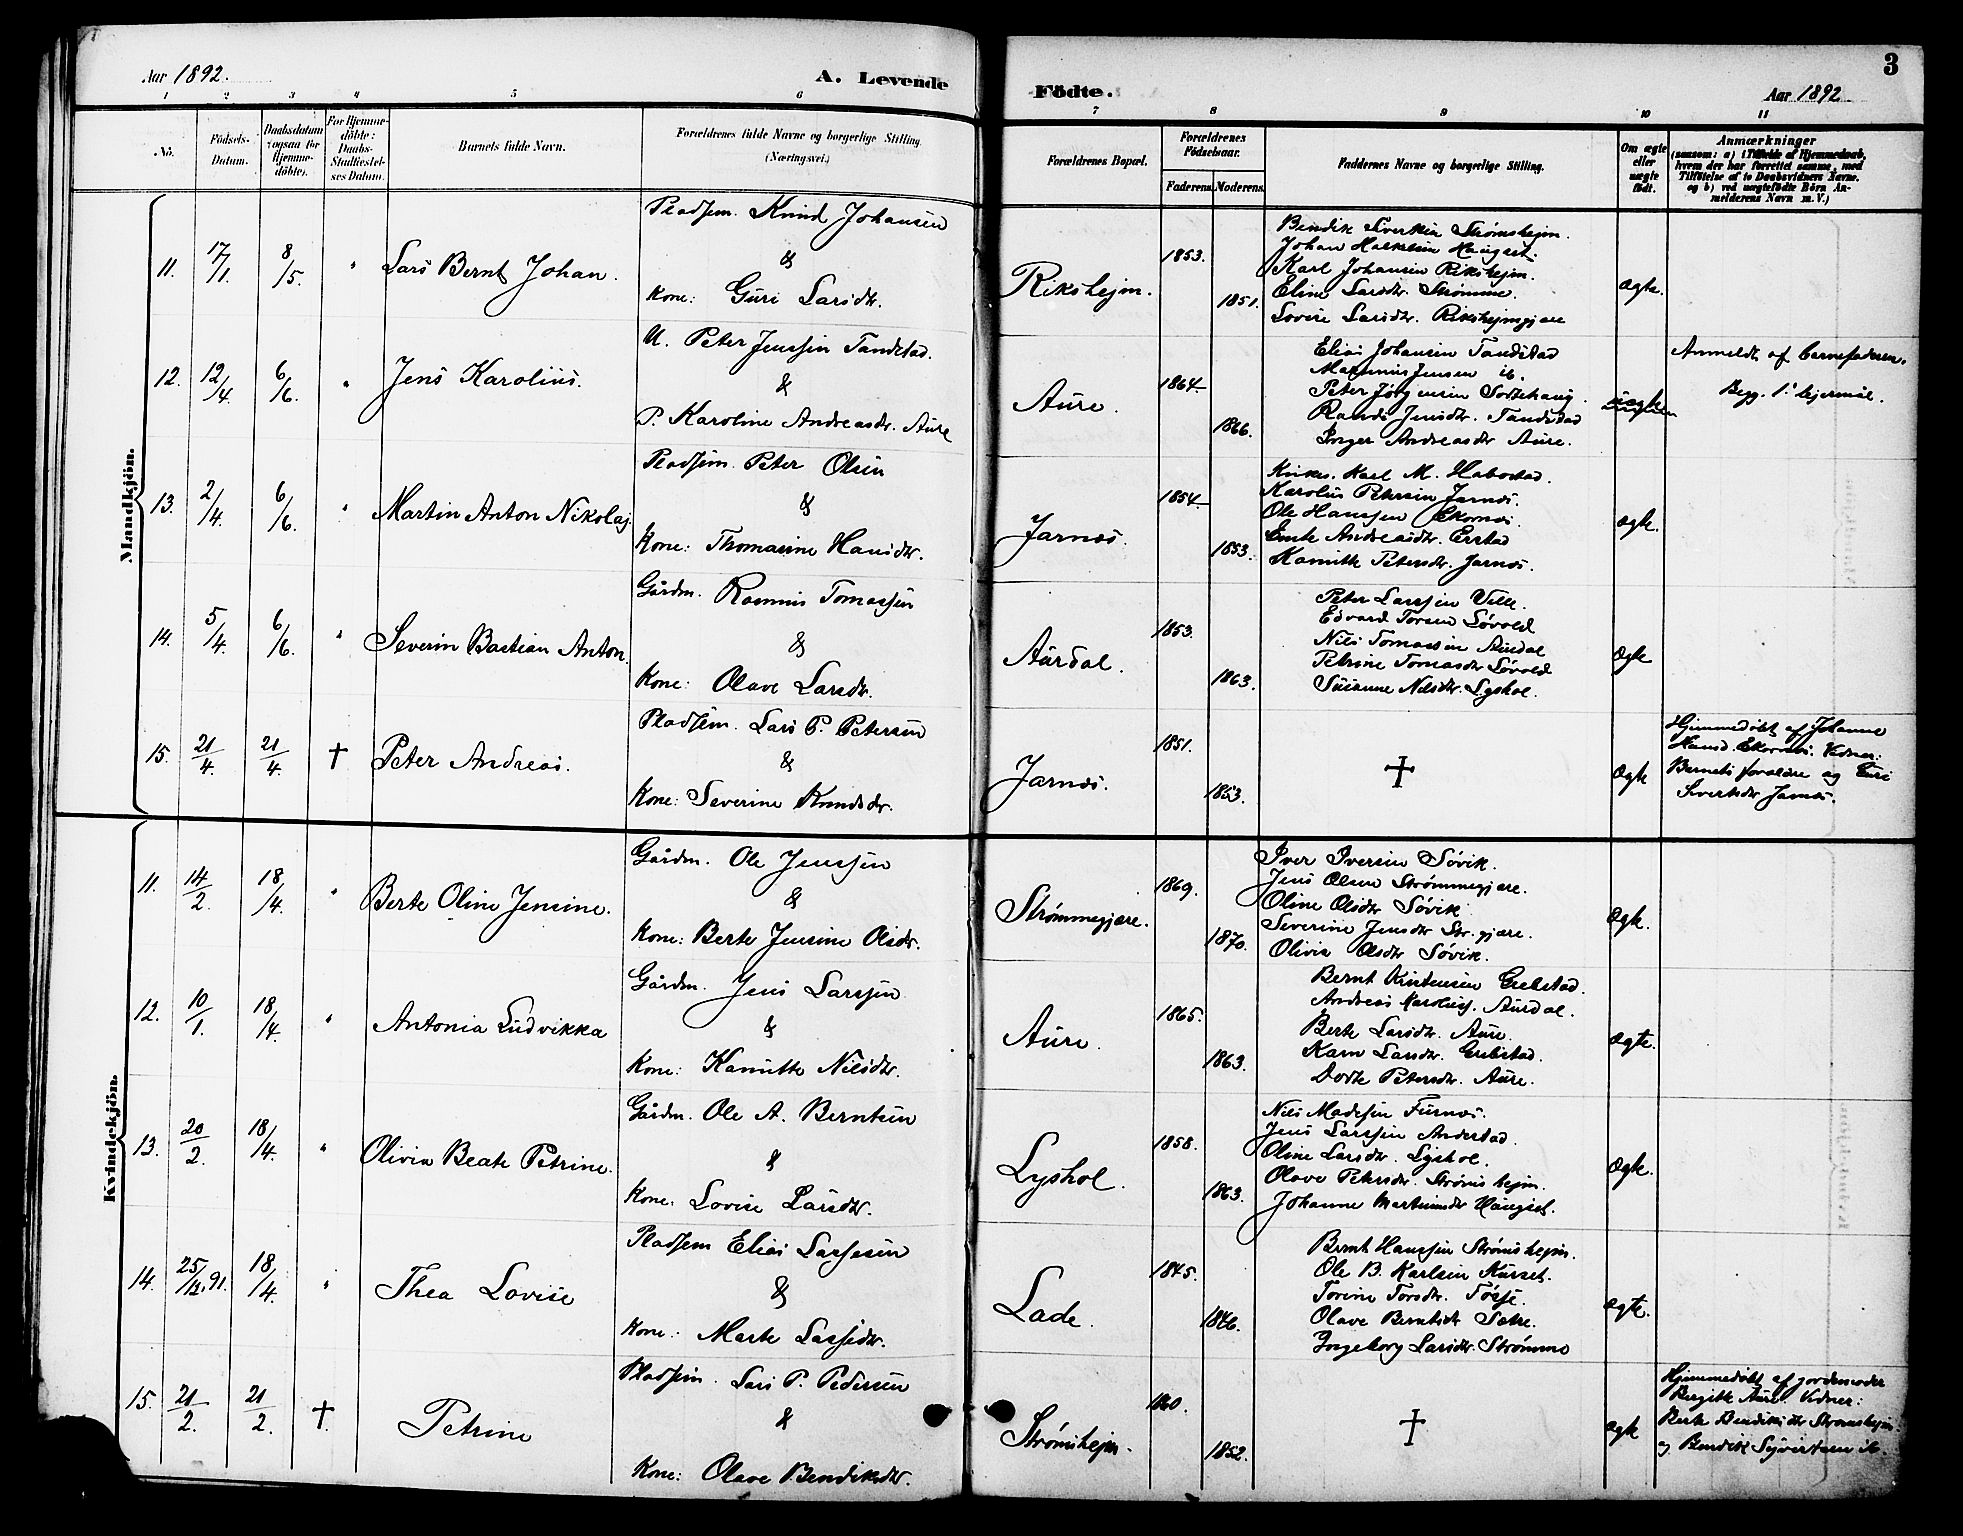 Aar 1892.
A. Levende
Födte.
Aar 1892
3
1 2 3 4 5 6 7 8 9 10 11
No.
Födsels-
Datum.
Daabsdatum
(ogsaa for
Hjemme-
döbte).
For Hjemme-
döbte:
Daabs-
Stadfæstel-
ses Datum.
Barnets fulde Navn.
Forældrenes fulde Navne og borgerlige Stilling
(Næringsvei.)
Forældrenes Bopæl.
Forældrenes
Födselsaar.
Faderens.
Moderens.
Faddernes Navne og borgerlige Stilling.
Om ægte
eller
uægte
födt.
Anmærkninger
(saasom: a) i Tilfælde af Hjemmedaab,
hvem der har forrettet samme, med
Tilföielse af to Daabsvidners Navne,
og b) ved uægtefödte Börn An-
melderens Navn m. V.)
Mandkjön.
11. 17/1. 8/5. " Lars Bernt Johan.
Pladsem. Knud Johansen
&
Kone: Guri Larsdtr.
Rikshejm.
1853.
1851.
Bendik Siverksen Strømshejm.
Johan Haakelsen Haugset.
Karl Johansen Rikshejm.
Eline Larsdtr. Strømme.
Lovise Larsdtr. Rikshejmgjære
ægte.
12. 12/4. 6/6. " Jens Karolius.
U. Peter Jenssen Tandstad.
&
P. Karoline Andreasdtr. Aure
Aure.
1864
1866.
Elias Johansen Tandstad
Magnus Jensen ib.
Peter Jørgensen Sottehaug.
Rande Jensdtr. Tandstad
Inger Andreasdtr Aure.
uægte
Anmeldt af barnefaderen.
Begg. 1' lejermål.
13. 2/4. 6/6. " Martin Anton Nikolaj
Pladsem. Peter Olsen
&
Kone: Thomasine Hansdtr.
Jarnæs.
1854
1853.
Kirkes. Karl M. Habostad.
Karolus Petersen Jarnæs.
Ole Hanssen Ekornæs.
Emte Andreasdtr. Erstad
Hamitte Petersdtr. Jarnæs.
ægte.
14. 5/4. 6/6. " Severin Bastian Anton.
Gårdm. Rasmus Tomassen
&
Kone: Olave Larsdtr.
Aurdal.
1853.
1863.
Peter Larssen Velle.
Edvard Torsen Løvold
Nils Tomassen Aurdal
Petrine Tomasdtr Løvold
Susanne Nilsdtr. Lyshol.
ægte
15. 21/4. 21/4. † Peter Andreas.
Pladsem. Lars P. Petersen
&
Kone: Severine Knudsdr.
Jarnæs.
1851.
1853.
†
ægte
Hjemmedøbt af Johanne
Hansd. Ekornæs. Vidner:
Barnets forældre og Guri
Sivertsdtr Jarnæs.
Kvindekjön.
11. 14/2. 18/4. " Berte Oline Jensine.
Gårdm. Ole Jenssen
&
Kone: Berte Jensine Olsdtr.
Strømmegjære.
1869.
1870.
Iver Iversen Søvik.
Jens Olsen Strømmegjære.
Oline Olsdtr Søvik.
Severine Jensdtr Str.gjære.
Olivia Olsdtr Søvik.
ægte.
12. 10/1. 18/4. " Antonia Ludvikka
Gårdm. Jens Larssen
&
Kone: Hamitte Nilsdtr.
Aure.
1865.
1863.
Bernt Kristensen Grebstad.
Andreas Karoliuss. Aurdal.
Berte Larsdtr. Aure.
Karn Larsdtr. Grebstad.
Dorte Petersdtr. Aure.
ægte.
13. 20/2. 18/4. " Olivia Beate Petrine.
Gårdm. Ole A. Berntsen
&
Kone: Lovise Larsdtr.
Lyshol.
1858.
1863.
Nils Madssen Furnæs.
Jens Larssen Andestad.
Oline Larsdtr. Lyshol.
Olave Petersdtr. Strømshejm.
Johanne Martinusdtr Haugset.
ægte.
14. 25/12.91. 18/4. " Thea Lovise
Pladsem Elias Larssen
&
Kone: Marte Larssdtr.
Lade.
1845.
1846.
Bernt Hanssen Strømshejm.
Ole B. Karlsen Kurset.
Torine Torsdtr. Tosse.
Olave Berntsdtr Sætre.
Ingeborg Larsdtr. Strømme
ægte.
15. 21/2. 21/2. † Petrine
Pladsem. Lars P. Pedersen
&
Kone: Olave Bendiksdtr.
Strømshejm.
1860.
1852.
†
ægte
Hjemmedøbt af jordemoder
Bergitte Aure. Vidner:
Berte Bendiksdtr Strømshejm
og Bendik Syvertsen ib.